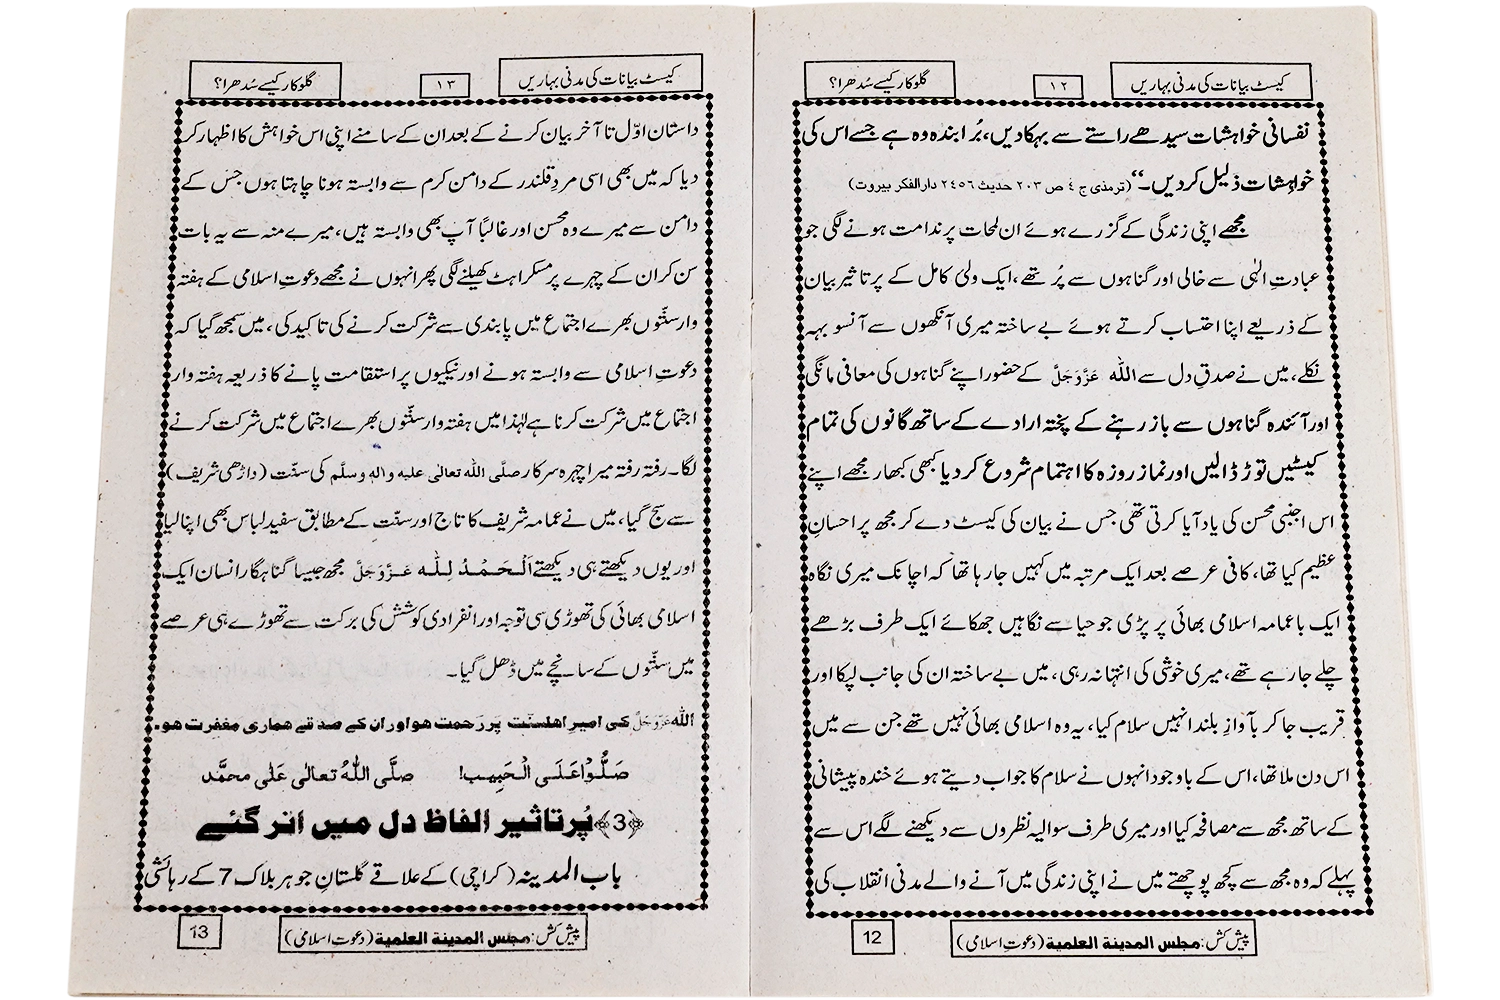 کیسٹ بیانات کی مدنی بہاریں
١٢
گلوکار کیسے سُدھرا؟
نفسانی خواہشات سیدھے راستے سے بہکادیں، بُرا بندہ وہ ہے جسے اس کی
خواہشات ذلیل کردیں۔“ (ترمذی ج ٤ ص ٢٠٣ حدیث ٢٤٥٦ دارالفکر بیروت)
مجھے اپنی زندگی کے گزرے ہوئے ان لمحات پر ندامت ہونے لگی جو
عبادتِ الٰہی سے خالی اور گناہوں سے پُر تھے، ایک ولیٔ کامل کے پر تاثیر بیان
کے ذریعے اپنا احتساب کرتے ہوئے بے ساختہ میری آنکھوں سے آنسو بہہ
نکلے، میں نے صدقِ دل سے اللہ عَزَّوَجَلَّ کے حضور اپنے گناہوں کی معافی مانگی
اور آئندہ گناہوں سے باز رہنے کے پختہ ارادے کے ساتھ گانوں کی تمام
کیسٹیں توڑ ڈالیں اور نماز روزہ کا اہتمام شروع کردیا کبھی کبھار مجھے اپنے
اس اجنبی محسن کی یاد آیا کرتی تھی جس نے بیان کی کیسٹ دے کر مجھ پر احسانِ
عظیم کیا تھا، کافی عرصے بعد ایک مرتبہ میں کہیں جارہا تھا کہ اچانک میری نگاہ
ایک باعمامہ اسلامی بھائی پر پڑی جو حیا سے نگاہیں جھکائے ایک طرف بڑھے
چلے جارہے تھے، میری خوشی کی انتہا نہ رہی، میں بے ساختہ ان کی جانب لپکا اور
قریب جا کر بآوازِ بلند انہیں سلام کیا، یہ وہ اسلامی بھائی نہیں تھے جن سے میں
اس دن ملا تھا، اس کے باوجود انہوں نے سلام کا جواب دیتے ہوئے خندہ پیشانی
کے ساتھ مجھ سے مصافحہ کیا اور میری طرف سوالیہ نظروں سے دیکھنے لگے اس سے
پہلے کہ وہ مجھ سے کچھ پوچھتے میں نے اپنی زندگی میں آنے والے مدنی انقلاب کی
پیش کش: مجلس المدینۃ العلمیۃ (دعوتِ اسلامی)
12
کیسٹ بیانات کی مدنی بہاریں
١٣
گلوکار کیسے سُدھرا؟
داستان اوّل تا آخر بیان کرنے کے بعد ان کے سامنے اپنی اس خواہش کا اظہار کر
دیا کہ میں بھی اسی مردِ قلندر کے دامن کرم سے وابستہ ہونا چاہتا ہوں جس کے
دامن سے میرے وہ محسن اور غالبًا آپ بھی وابستہ ہیں، میرے منہ سے یہ بات
سن کر ان کے چہرے پر مسکراہٹ کھیلنے لگی پھر انہوں نے مجھے دعوتِ اسلامی کے ہفتہ
وار سنّتوں بھرے اجتماع میں پابندی سے شرکت کرنے کی تاکید کی، میں سمجھ گیا کہ
دعوتِ اسلامی سے وابستہ ہونے اور نیکیوں پر استقامت پانے کا ذریعہ ہفتہ وار
اجتماع میں شرکت کرنا ہے لہٰذا میں ہفتہ وار سنّتوں بھرے اجتماع میں شرکت کرنے
لگا۔ رفتہ رفتہ میرا چہرہ سرکار صلَّی اللہ تعالٰی علیہ والہٖ وسلَّم کی سنّت (داڑھی شریف)
سے سج گیا، میں نے عمامہ شریف کا تاج اور سنّت کے مطابق سفید لباس بھی اپنا لیا
اور یوں دیکھتے ہی دیکھتے اَلْحَمْدُ لِلّٰہ عَزَّوَجَلَّ مجھ جیسا گناہگار انسان ایک
اسلامی بھائی کی تھوڑی سی توجہ اور انفرادی کوشش کی برکت سے تھوڑے ہی عرصے
میں سنّتوں کے سانچے میں ڈھل گیا۔
اللہ عَزَّوَجَلَّ کی امیرِ اھلسنّت پر رَحمت ھو اور ان کے صدقے ھماری مغفرت ھو۔
صَلُّوْا عَلَی الْحَبِیب! صلَّی اللّٰہُ تعالٰی عَلٰی محمَّد
﴿3﴾ پُر تاثیر الفاظ دل میں اتر گئے
باب المدینہ (کراچی) کے علاقے گلستانِ جوہر بلاک 7 کے رہائشی
پیش کش: مجلس المدینۃ العلمیۃ (دعوتِ اسلامی)
13